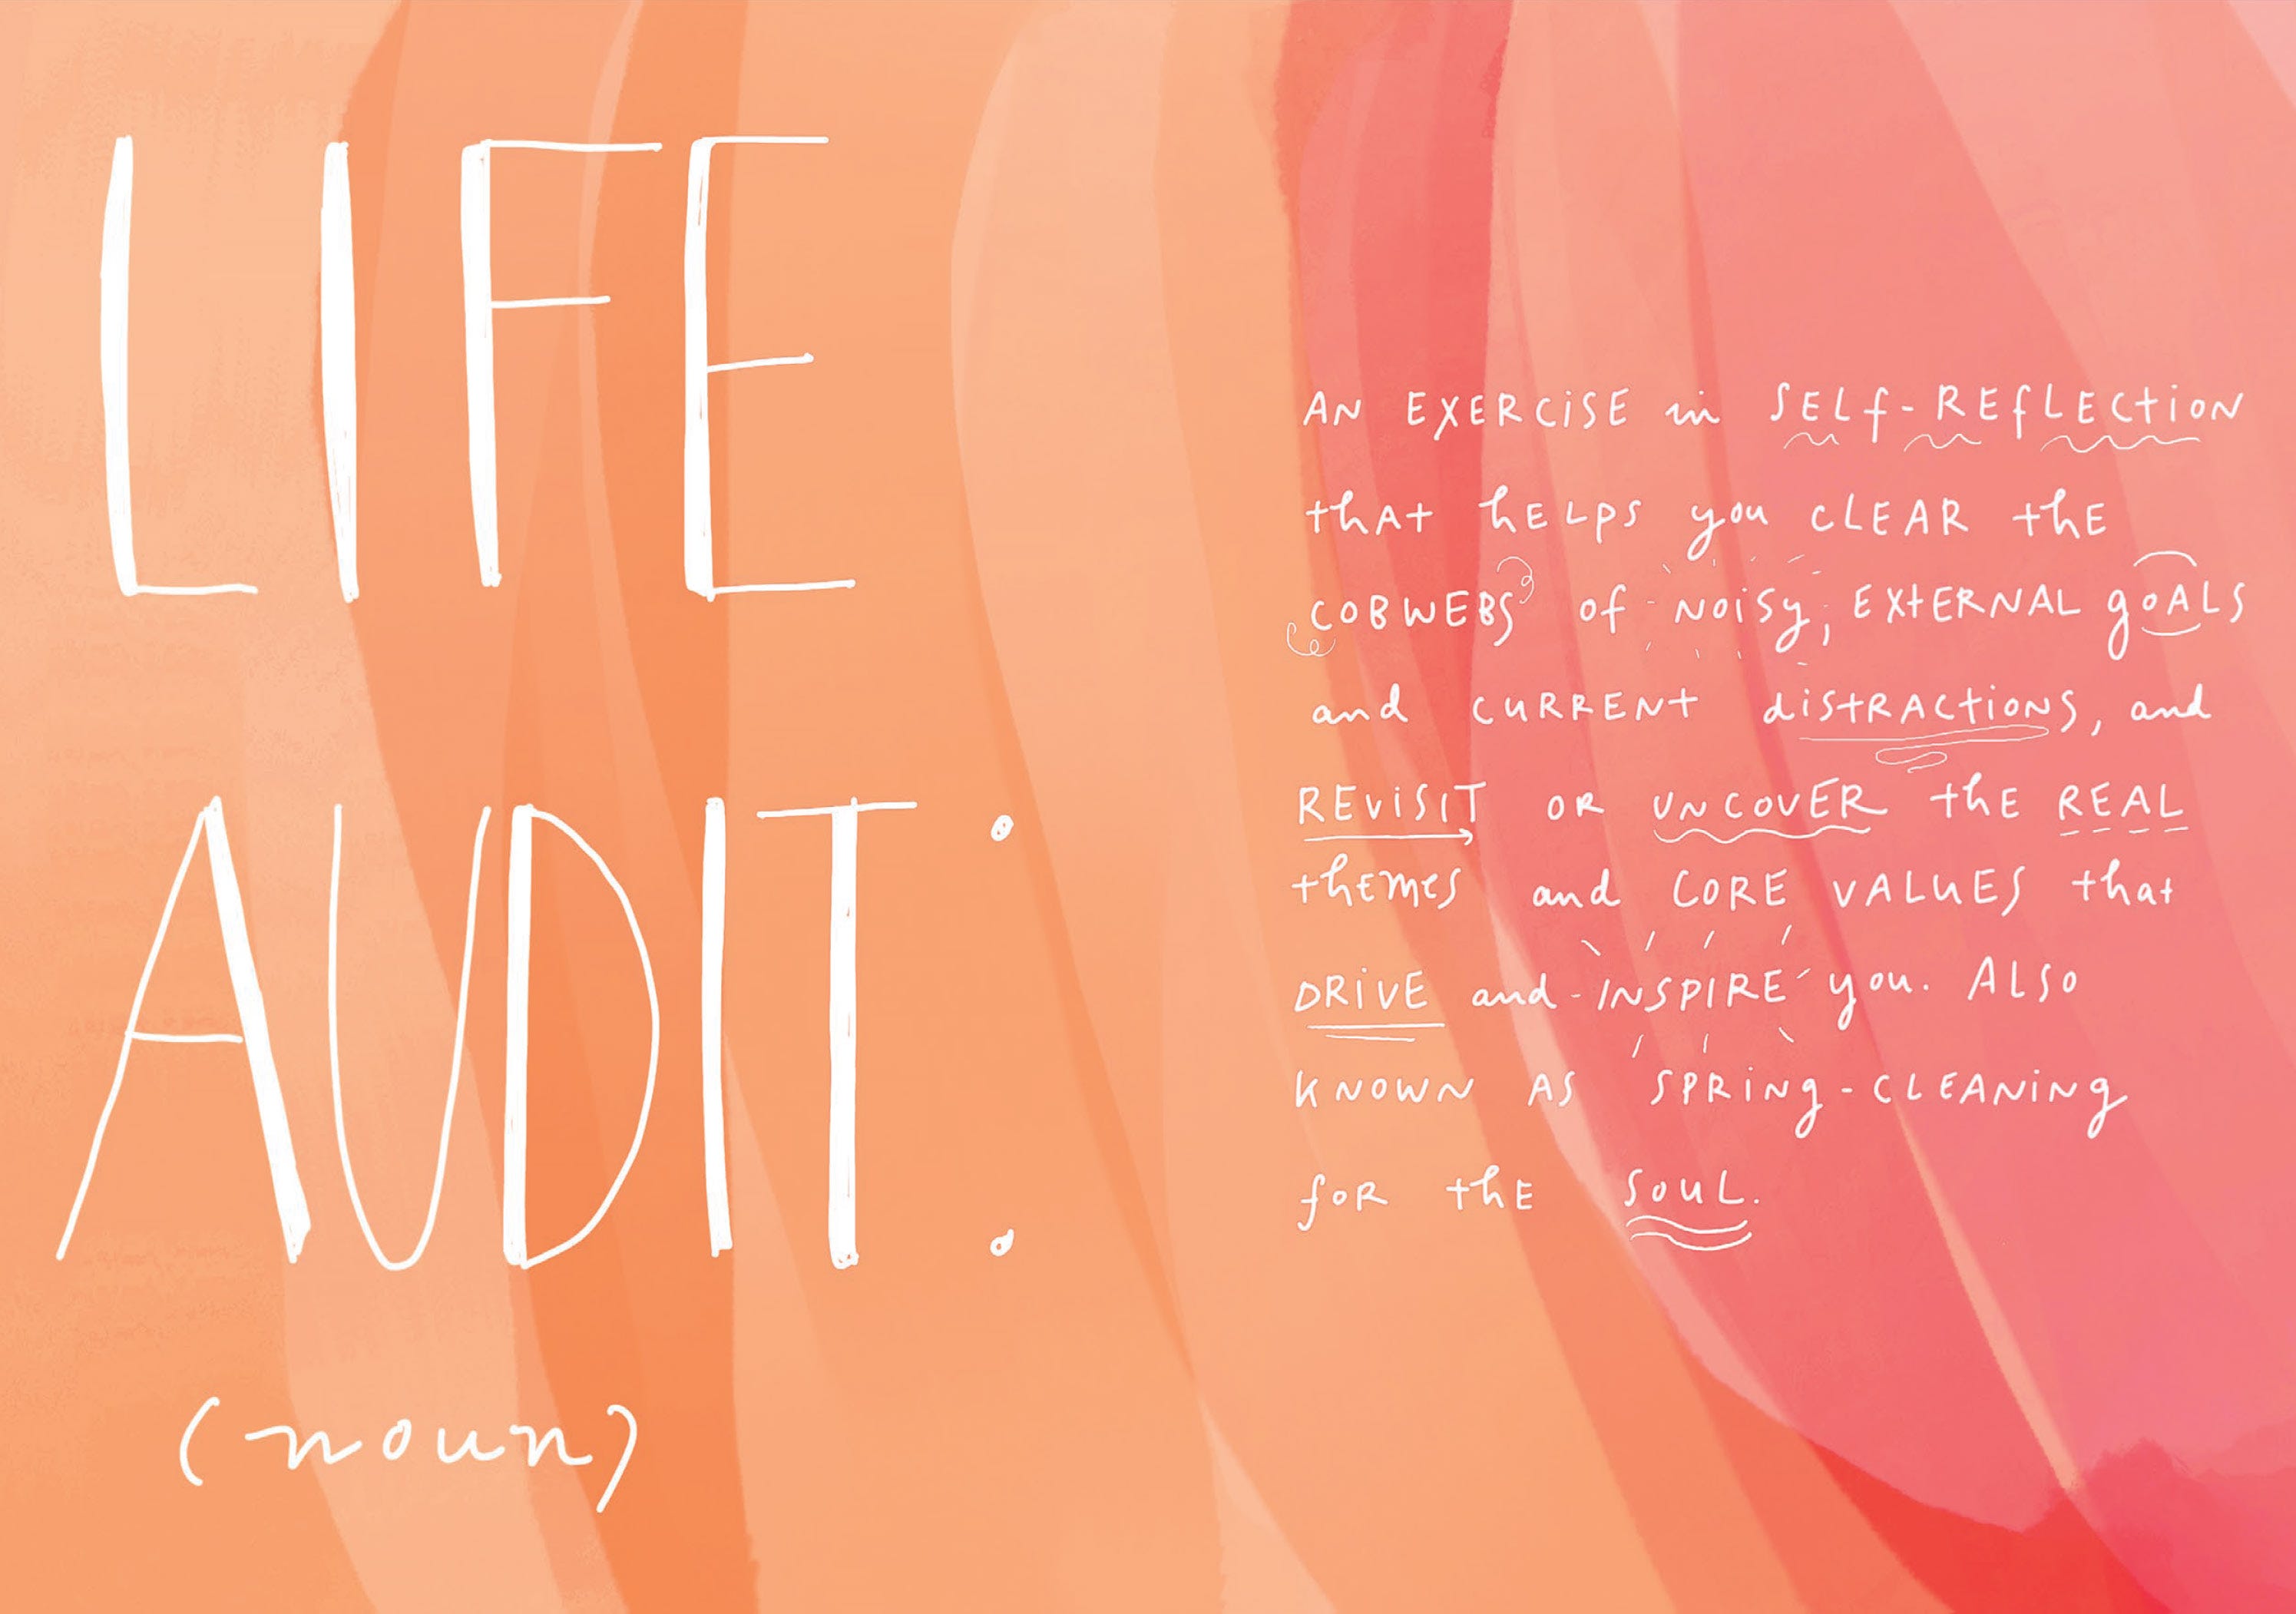 LIFE
AUDIT:
(noun)
AN EXERCISE in SELf-REfLECtiON
thAt hELPS you CLEAR thE
COBWEBS of NOiSy, EXtERNAL gOALS
and CURRENt diStRACtiONS, and
REViSIT OR UNCOVER thE REAL
thEmES and CORE VALUES that
DRiVE and INSPIRE you. ALSO
KNOWN AS SPRiNg-CLEANiNg
foR thE SOUL.